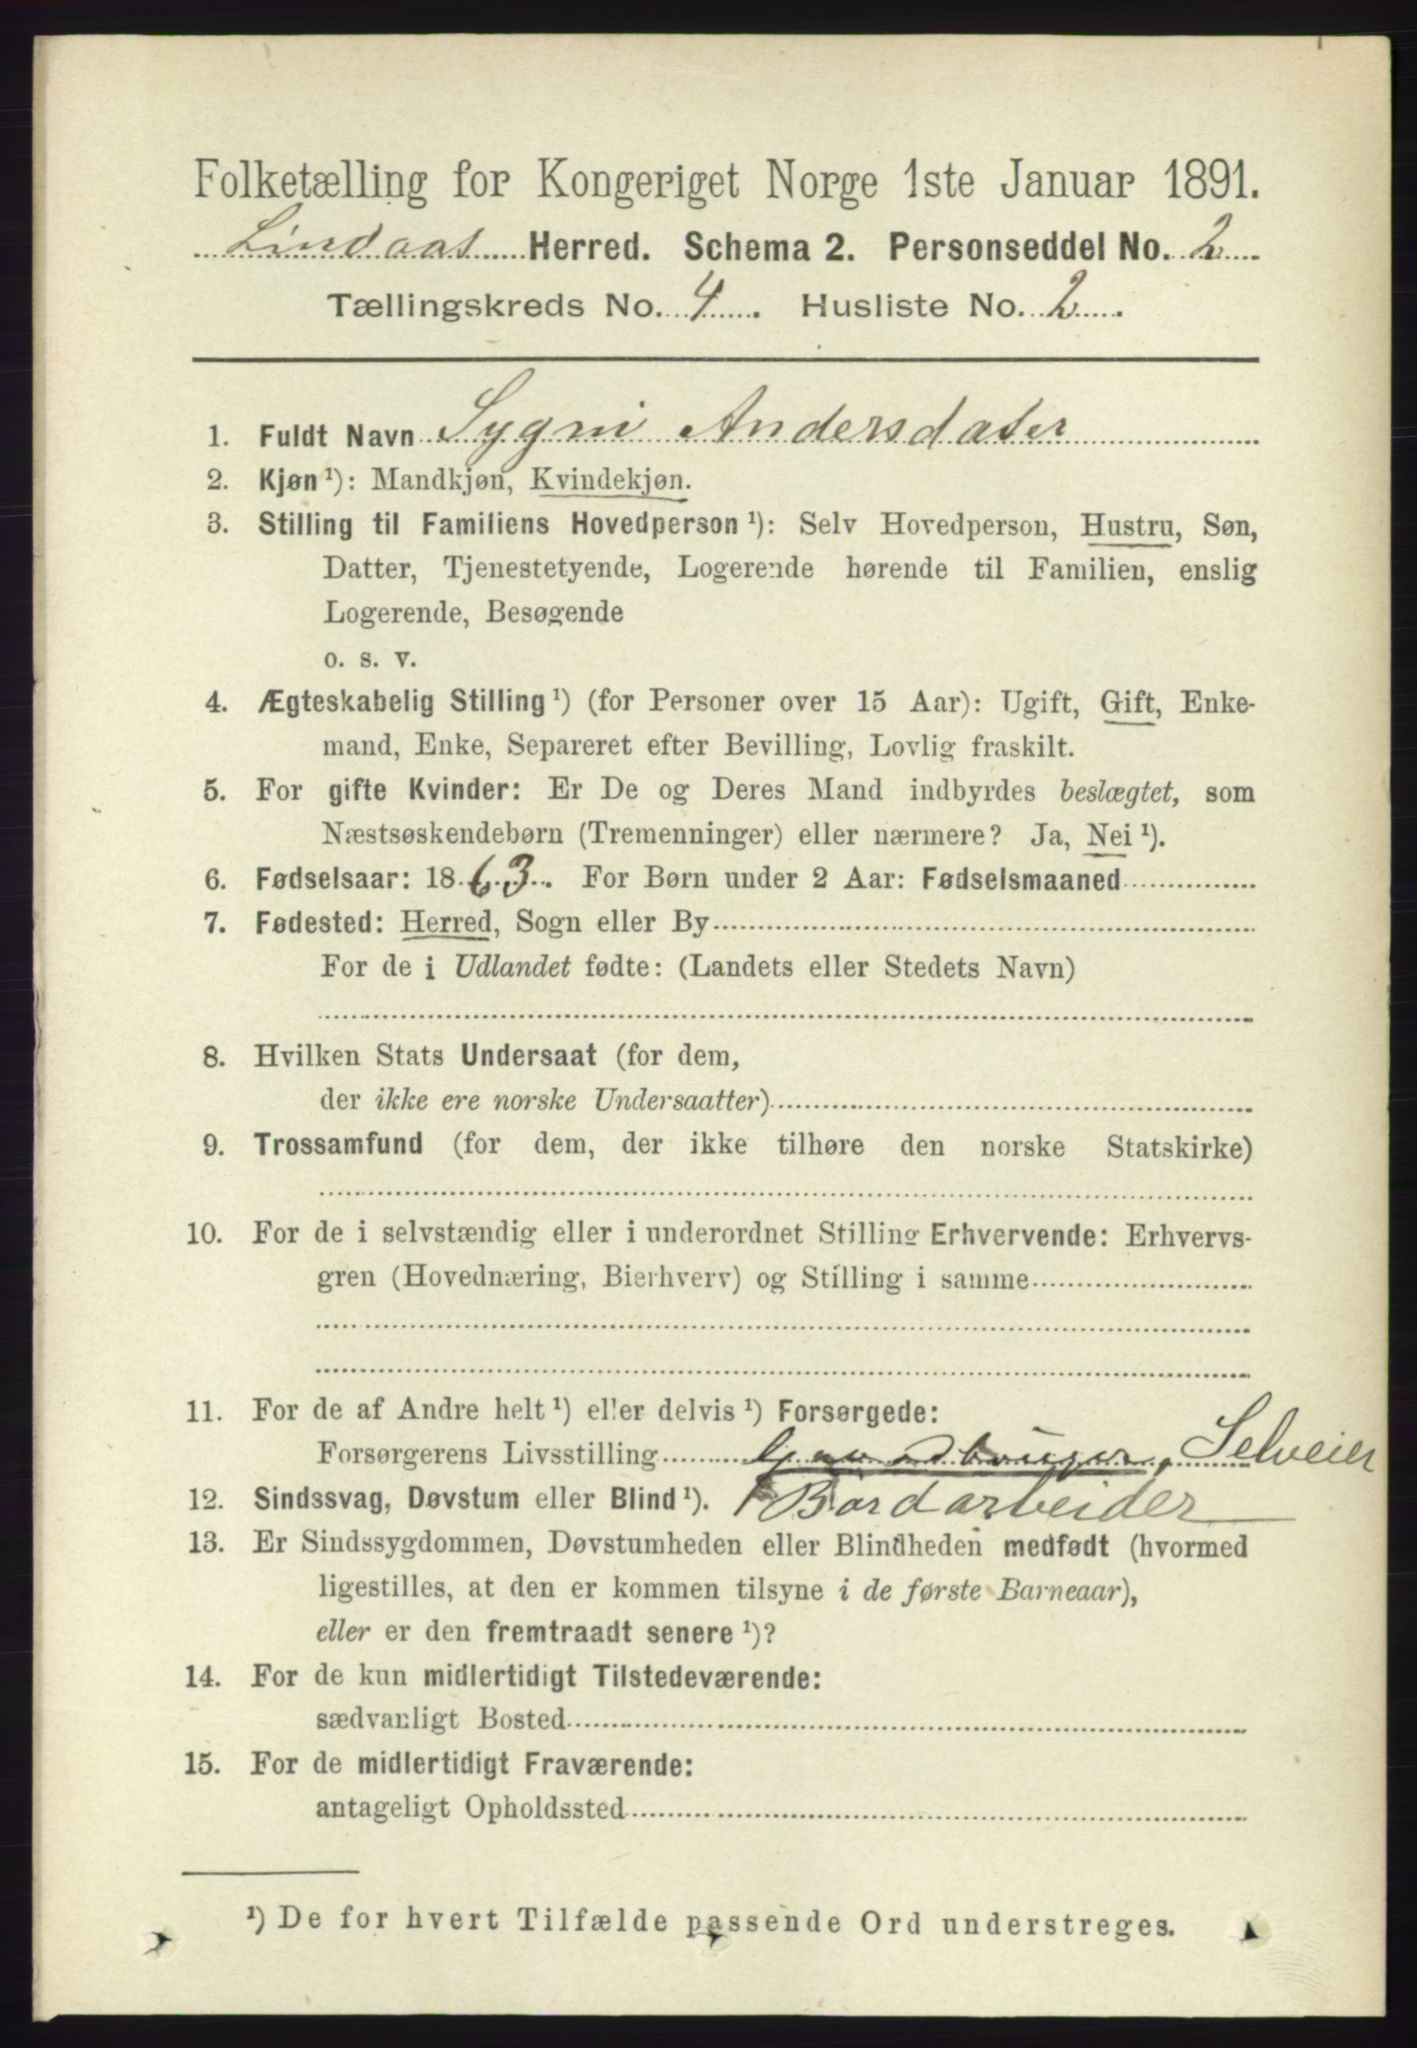 Folketælling for Kongeriget Norge 1ste Januar 1891.
Lindaas Herred. Schema 2. Personseddel No. 2
Tællingskreds No. 4. Husliste No. 2.
1. Fuldt Navn Sygni Andersdater
2. Kjøn¹): Mandkjøn, Kvindekjøn.
3. Stilling til Familiens Hovedperson¹): Selv Hovedperson, Hustru, Søn,
Datter, Tjenestetyende, Logerende hørende til Familien, enslig
Logerende, Besøgende
o. s. v.
4. Ægteskabelig Stilling¹) (for Personer over 15 Aar): Ugift, Gift, Enke-
mand, Enke, Separeret efter Bevilling, Lovlig fraskilt.
5. For gifte Kvinder: Er De og Deres Mand indbyrdes beslægtet, som
Næstsøskendebørn (Tremenninger) eller nærmere? Ja, Nei¹).
6. Fødselsaar: 1863. For Børn under 2 Aar: Fødselsmaaned
7. Fødested: Herred, Sogn eller By
For de i Udlandet fødte: (Landets eller Stedets Navn)
8. Hvilken Stats Undersaat (for dem,
der ikke ere norske Undersaatter)
9. Trossamfund (for dem, der ikke tilhøre den norske Statskirke)
10. For de i selvstændig eller i underordnet Stilling Erhvervende: Erhvervs-
gren (Hovednæring, Bierhverv) og Stilling i samme
11. For de af Andre helt¹) eller delvis¹) Forsørgede:
Forsørgerens Livsstilling Gaardbruger, Selveier
12. Sindssvag, Døvstum eller Blind¹). Bordarbeider
13. Er Sindssygdommen, Døvstumheden eller Blindheden medfødt (hvormed
ligestilles, at den er kommen tilsyne i de første Barneaar),
eller er den fremtraadt senere¹)?
14. For de kun midlertidigt Tilstedeværende:
sædvanligt Bosted
15. For de midlertidigt Fraværende:
antageligt Opholdssted
¹) De for hvert Tilfælde passende Ord understreges.